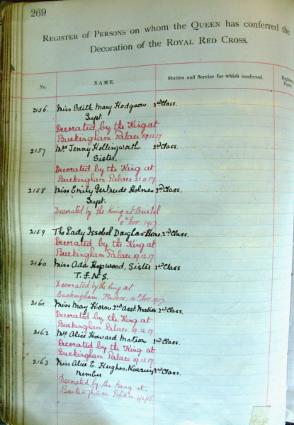 269
Register of Persons on whom the Queen has conferred the
Decoration of the Royal Red Cross.
No. NAME. Station and Service for which conferred.
2156. Miss Edith Mary Hodgson 2nd Class.
Supt
Decorated by the King at
Buckingham Palace
2157 Jenny Hollingworth 2nd Class.
Sister.
Decorated by the King at
Buckingham Palace
2158 Miss Emily Gertrude Holmes 2nd Class.
Supt.
Decorated by the King at Bristol
Nov. 1917
2159 The Lady Issobel 2nd Class.
Decorated by the King at
Buckingham Palace
2160 Miss Ada Hopwood, Sister 2nd Class
T.F.N.S.
Decorated by the King at
Buckingham Palace
2161 Miss May Horn Asst Matron 2nd Class.
Decorated by the King at
Buckingham Palace
2162 Alice Howard Matron 2nd Class.
Decorated by the King at
Buckingham Palace
2163 Miss Alice E. Hughes, Nursing 2nd Class.
Member
Decorated by the King at
Buckingham Palace